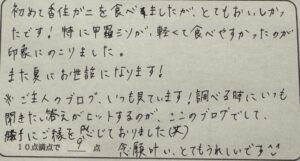 初めて香住ガニを食べましたが、とてもおいしかっ
たです！特に甲羅ミソが、軽くて食べやすかったのが
印象にのこりました。
また夏にお世話になります！
※ご主人のブログ、いつも見ています！調べる時に、いつも
聞きたい答えがヒットするのが、ここのブログでして、
勝手にご縁を感じておりました(笑)
10点満点で 9 点 念願叶い、とてもうれしいです